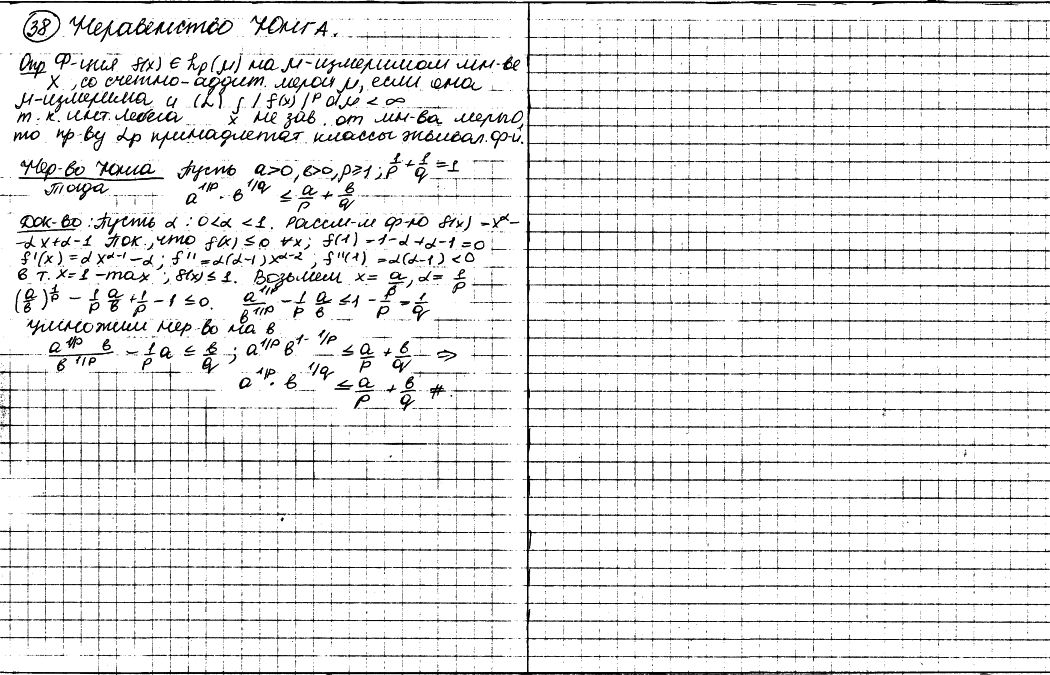 38 Неравенство Юнга.
Опр Ф-ция f(x) ∈ Lp(μ) на μ-измеримом мн-ве
X, со счетно-аддит. мерой μ, если она
μ-измерима и (L) ∫_X |f(x)|^p dμ < ∞
т.к. инт. Лебега не зав. от мн-ва меры 0,
то пр-ву Lp принадлежат классы эквивал. ф-й.
Нер-во Юнга Пусть a>0, b>0, p≥1; 1/p + 1/q = 1
Тогда a^{1/p} · b^{1/q} ≤ a/p + b/q
Док-во: Пусть α : 0<α<1. Рассм-м ф-ю f(x) = x^α -
- αx + α - 1 Пок., что f(x) ≤ 0 ∀x; f(1) = 1 - α + α - 1 = 0
f'(x) = αx^{α-1} - α; f'' = α(α-1)x^{α-2}; f''(1) = α(α-1) < 0
в т. x=1 - max; f(x) ≤ 1. Возьмем x = a/b, α = 1/p
(a/b)^{1/p} - 1/p a/b + 1/p - 1 ≤ 0. a^{1/p}/b^{1/p} - 1/p a/b ≤ 1 - 1/p = 1/q
Умножим нер-во на b
a^{1/p} b / b^{1/p} - 1/p a ≤ b/q; a^{1/p} b^{1-1/p} ≤ a/p + b/q ⇒
a^{1/p} · b^{1/q} ≤ a/p + b/q #.